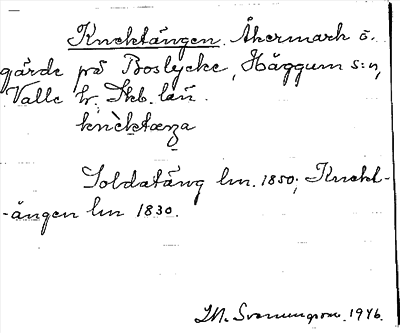 Knektängen. Åkermark o.
gärde på Boslycke, Häggum s:n,
Valle hr. Skb. län.
knèktæŋa
Soldatäng lm. 1850; Knekt-
-ängen lm 1830.
M. Svanungson. 1946.